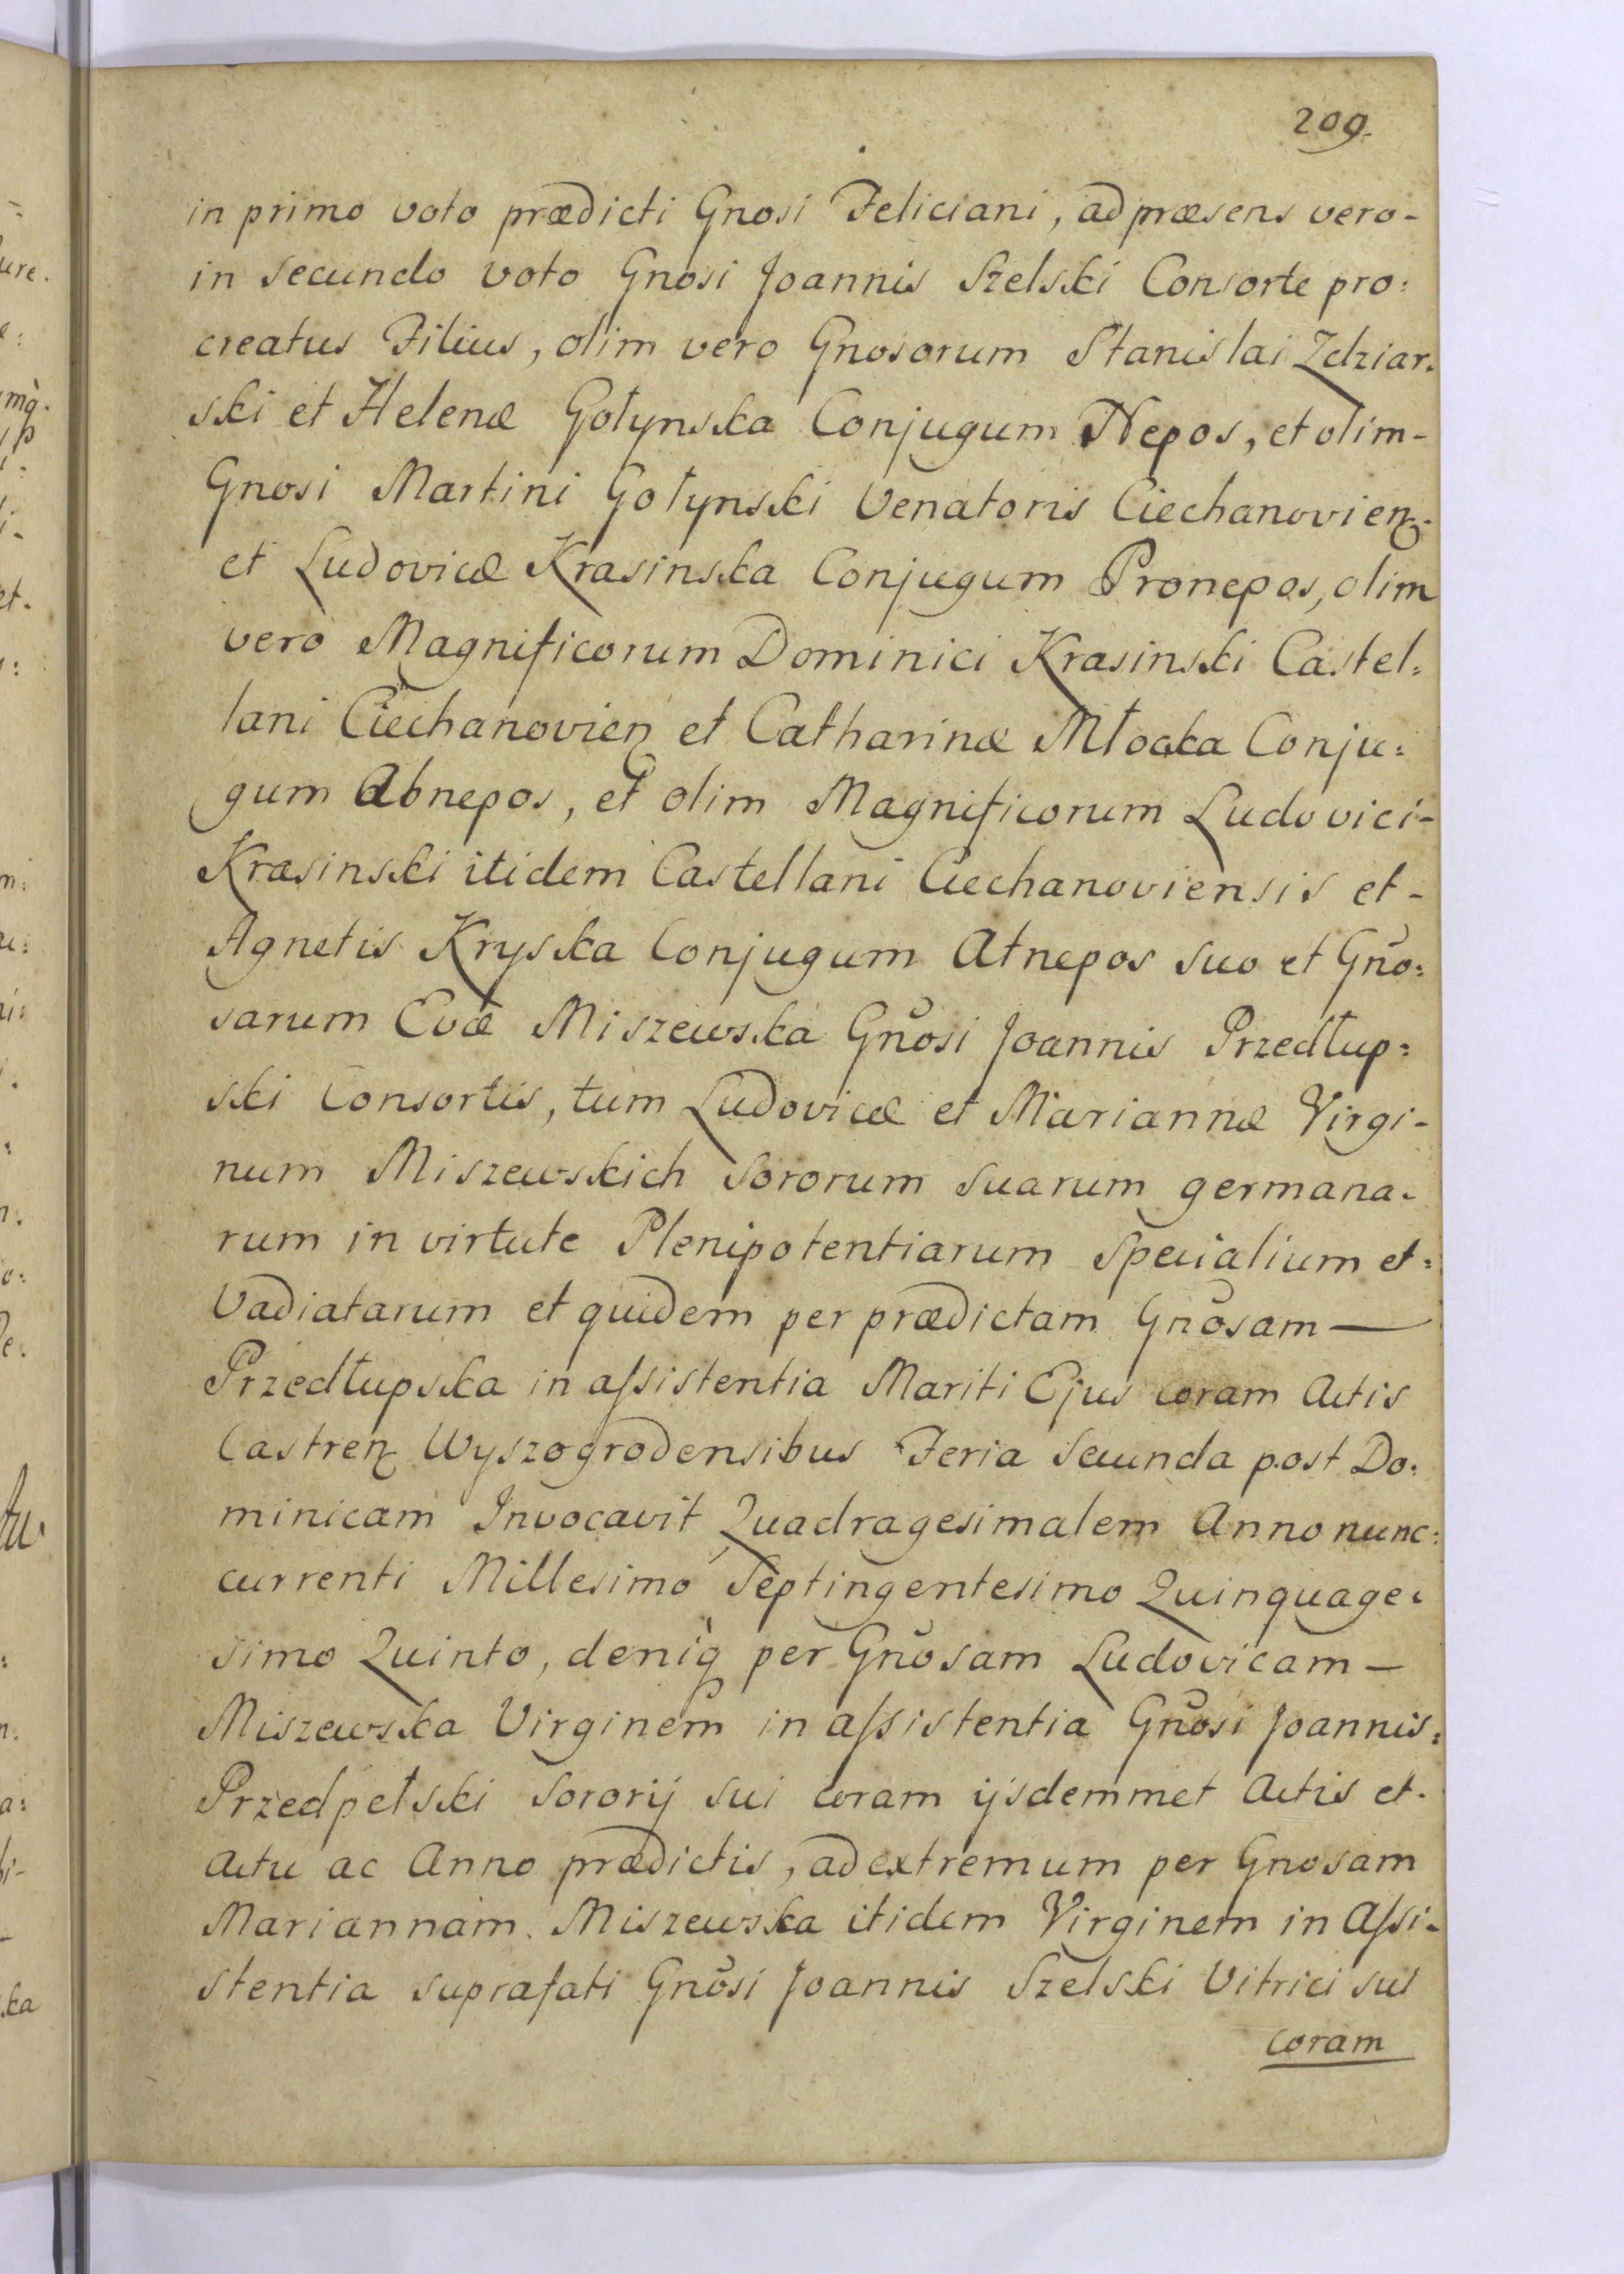 209.
in primo voto prædicti Gnosi Feliciani, ad præsens vero-
in secundo voto Gnosi Joannis Szelski Consorte pro:
creatus Filius, olim vero Gnosorum Stanislai Zdziar.
ski et Helenæ Gołynska Conjugum Nepos, et olim-
Gnosi Martini Gołynski Venatoris Ciechanovienꝫ.
et Ludovicæ Krasinska Conjugum Pronepos, olim
vero Magnificorum Dominici Krasinski Castel:
lani Ciechanovienꝫ et Catharinæ Młocka Conju:
gum Abnepos, et olim Magnificorum Ludovici-
Krasinski itidem Castellani Ciechanoviensis et-
Agnetis Kryska Conjugum Atnepos suo et Gño:
sarum Evæ Miszewska Gñosi Joannis Przedłup:
ski Consortis, tum Ludovicæ et Mariannæ Virgi-
num Miszewskich Sororum suarum germana.
rum in virtute Plenipotentiarum Specialium et:
Vadiatarum et quidem per prædictam Gñosam —
Przedłupska in aſsistentia Mariti Ejus coram Actis
Castrenꝫ Wyszogrodensibus Feria Secunda post Do:
minicam Invocavit Quadragesimalem Anno nunc:
currenti Millesimo Septingentesimo Quinquage:
simo Quinto, deniq̀ per Gñosam Ludovicam —
Miszewska Virginem in aſsistentia Gñosi Joannis:
Przedpełski Sororij sui coram ijsdemmet Actis et.
Actu ac Anno prædictis, ad extremum per Gnosam
Mariannam. Miszewska itidem Virginem in Aſsi-
stentia suprafati Gñosi Joannis Szelski Vitrici sui
coram